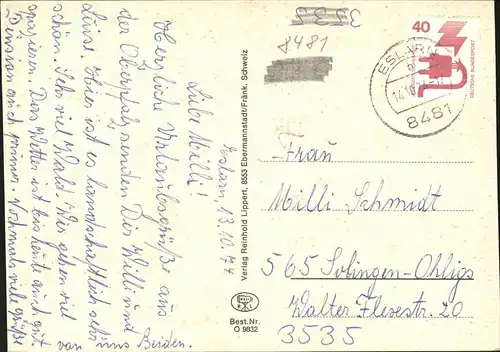 Eslarn, 13.10.74
Liebe Milli!
Herzliche Urlaubsgrüße aus
der Oberpfalz senden Dir Willi und
Luise. Hier ist es landschaftlich sehr
schön. Sehr viel Wald. Wir gehen viel
spazieren. Das Wetter ist bis heute auch gut.
Pension auch prima. Nochmals viele Grüße
von uns Beiden.
Verlag Reinhold Lippert, 8553 Ebermannstadt/Fränk. Schweiz
Best.Nr.
O 9832
8481
40
DEUTSCHE BUNDESPOST
ESLARN
14.10.
8481
Frau
Milli Schmidt
565 Solingen-Ohligs
Walter Flexstr. 20
3535